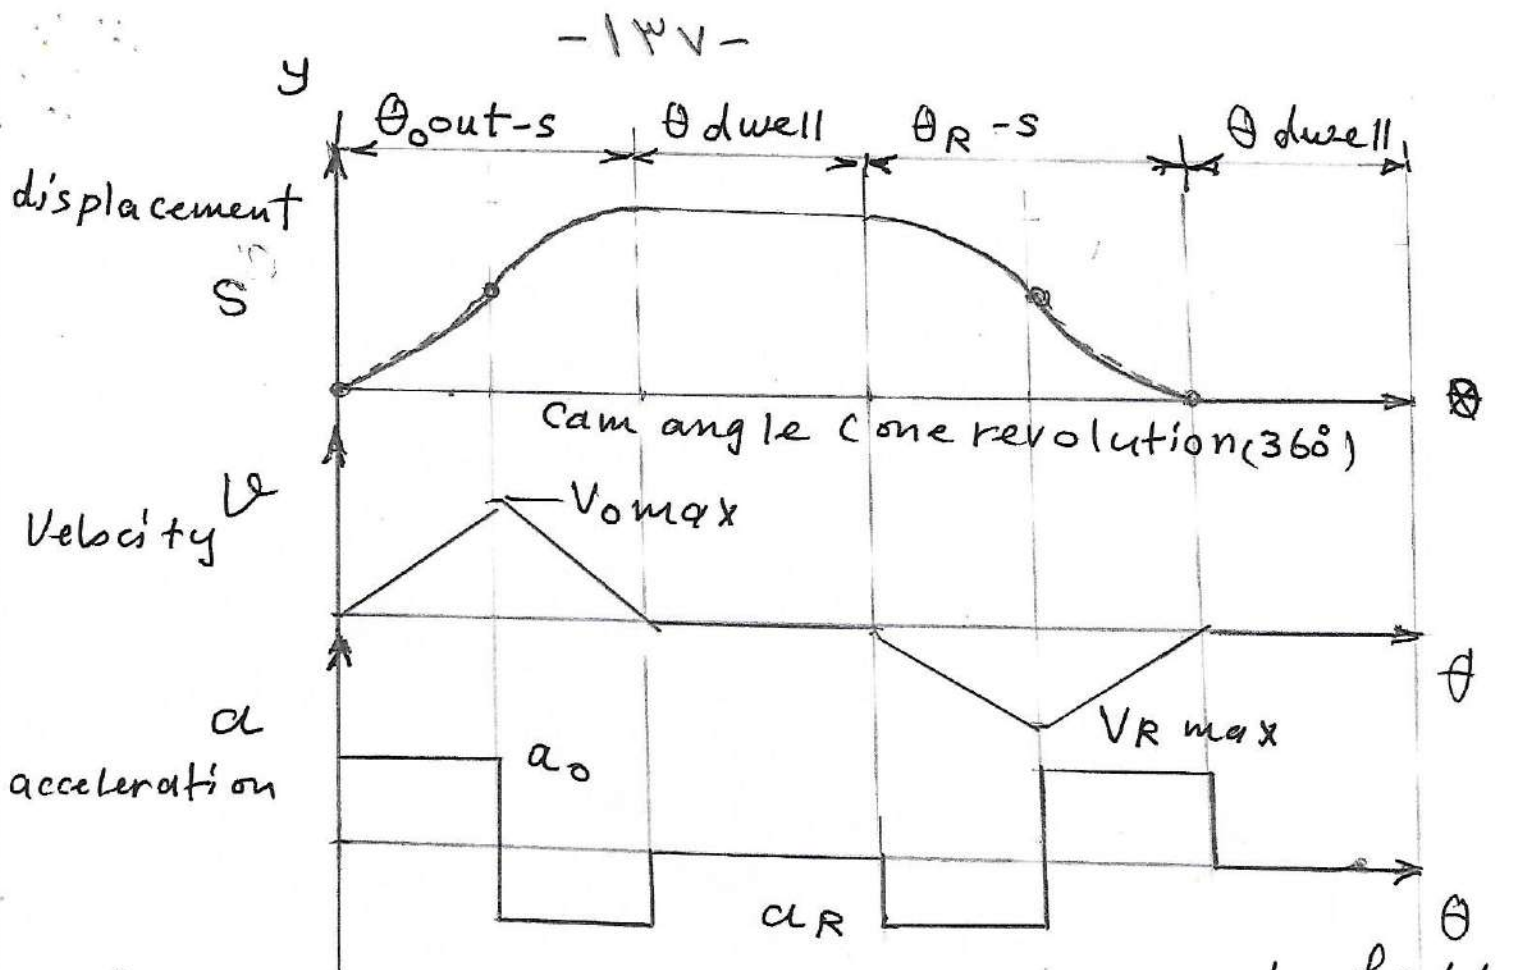 -١٣٧-
y
θ₀out-s θdwell θR-s θdwell
displacement
S
θ
Cam angle (one revolution(360°)
Velocity V
V₀max
θ
VR max
a
a₀
acceleration
aR
θ